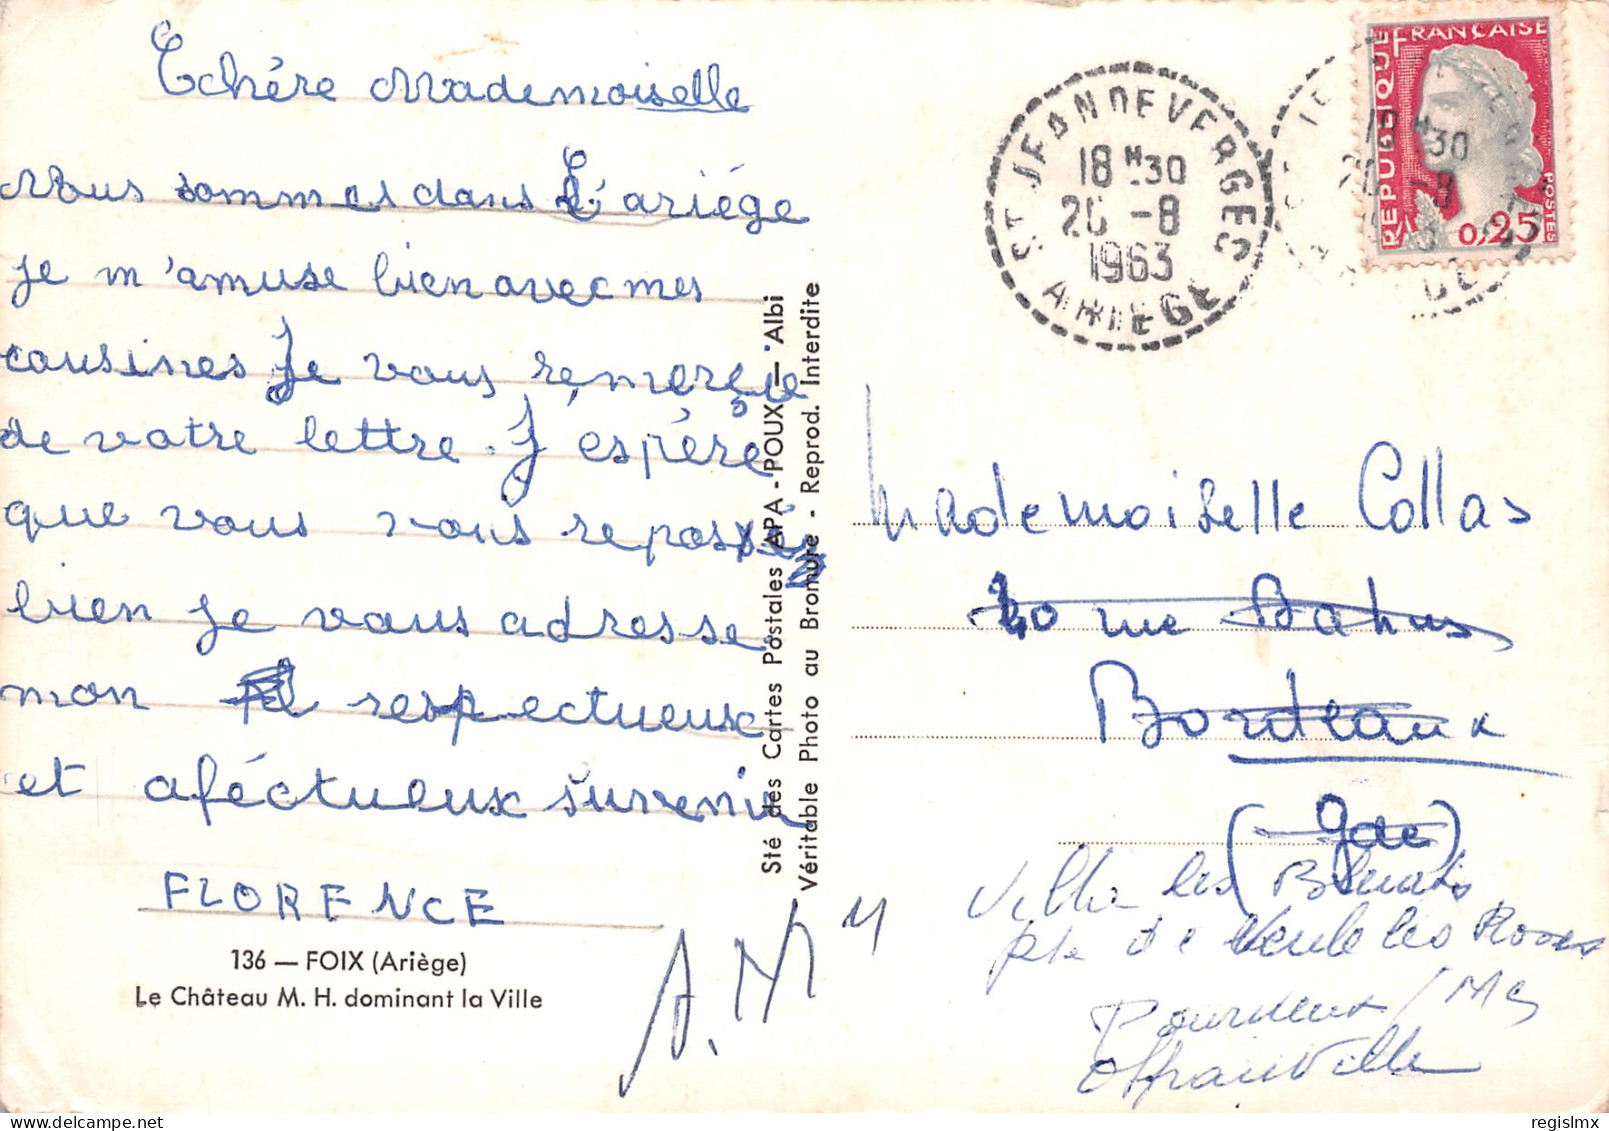 Chére Mademoiselle
Nous sommes dans l'ariége
je m'amuse bien avec mes
cousines Je vous remerçie
de votre lettre. J'éspére
que vous vous repos
bien je vous adresse
mon respectueux
et aféctueux survenir
FLORENCE
136 — FOIX (Ariège)
Le Château M. H. dominant la Ville
Sté des Cartes Postales APA - POUX — Albi
Véritable Photo au Bromure - Reprod. Interdite
ST JEAN DE VERGES
18 H 30
20 -8
1963
ARIEGE
REPUBLIQUE FRANÇAISE
POSTES
0,25
18 H 30
Mademoiselle Collas
20 rue
Bordeaux
(Gde)
Villa les
pte de Veule les Roses
Offranville
A.M
regislmx